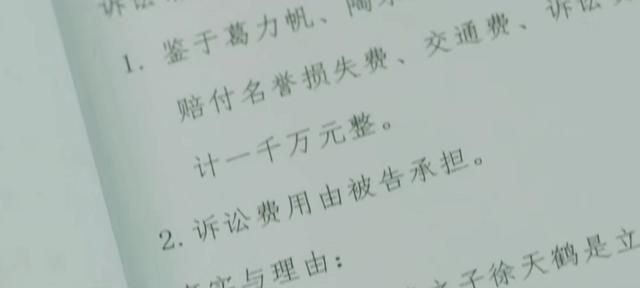 诉讼
1. 鉴于葛力帆、陶
赔付名誉损失费、交通费、诉讼
计一千万元整。
2. 诉讼费用由被告承担。
事实与理由：
之子徐天鹤是立